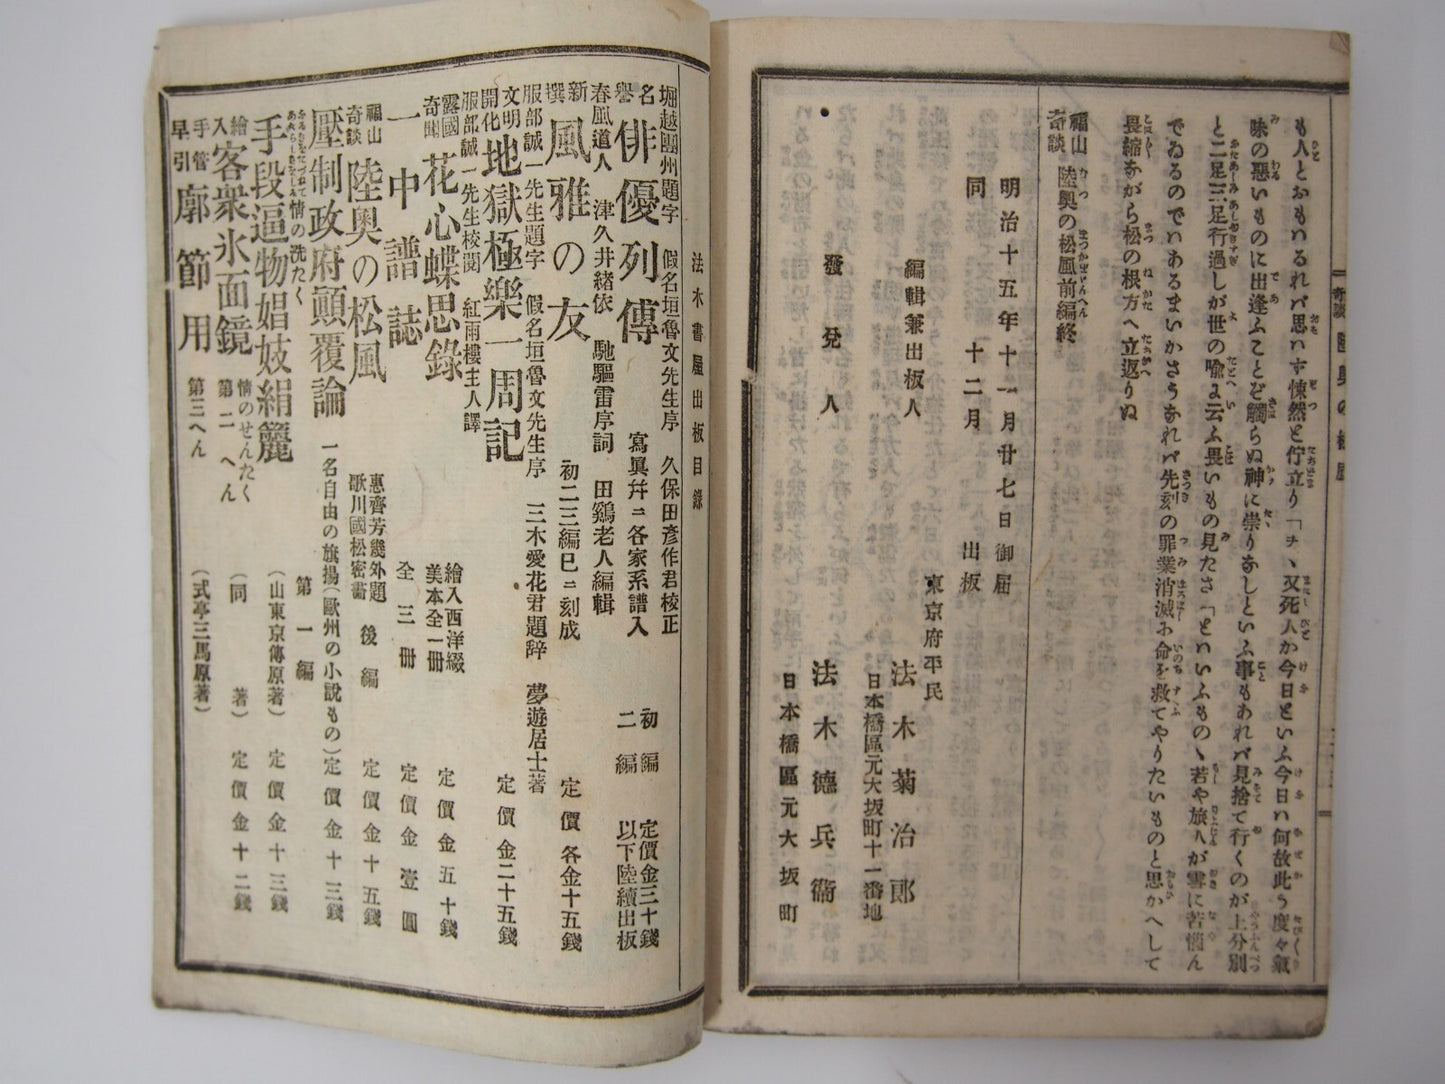 も人とおもハるれバ思ハず悚然と佇立り「ヲヽ又死人か今日といふ今日ハ何故此う度々氣
味の惡いものに出逢ふことぞ觸らぬ神に祟りなしといふ事もあれバ見捨て行くのが上分別
と二足三足行過しが世の喩よ云ふ畏いもの見たさ「とハいふものゝ若や旅人が雪に苦惱ん
でゐるのでハあるまいかさうなれバ先刻の罪業消滅に命を救てやりたいものと思かへして
畏縮ながら松の根方へ立返りぬ
福山
奇談
陸奥の松風前編終
明治十五年十一月廿七日御屆
同 十二月 出板
東京府平民
編輯兼出板人 法木菊治郎
日本橋區元大坂町十一番地
發兌人 法木德兵衞
日本橋區元大坂町
法木書屋出板目錄
堀越團州題字 假名垣魯文先生序 久保田彦作君校正
名譽 俳優列傳 寫眞幷ニ各家系譜入 初編 定價金三十錢
二編 以下陸續出板
春風道人 津久井緒依 馳驅雷序詞 田鷄老人編輯
新撰 風雅の友 初二三編巳ニ刻成 定價各金十五錢
服部誠一先生題字 假名垣魯文先生序 三木愛花君題辞 夢遊居士著
文明開化 地獄極樂一周記 定價金二十五錢
服部誠一先生校閲 紅雨樓主人譯
露國奇聞 花心蝶思錄 繪入西洋綴美本全一冊 定價金五十錢
一中譜誌 全三冊 定價金壹圓
福山奇談 陸奥の松風 惠齊芳幾外題 歌川國松密畵 後編 定價金十五錢
壓制政府顛覆論 一名自由の旗揚(歐州の小說もの)定價金十三錢
情の洗たく 第一編
手段逼物娼妓絹籭 (山東京傳原著) 定價金十三錢
繪入 客衆氷面鏡 情のせんたく 第二へん (同 著) 定價金十二錢
手管早引 廓節用 第三へん (式亭三馬原著)